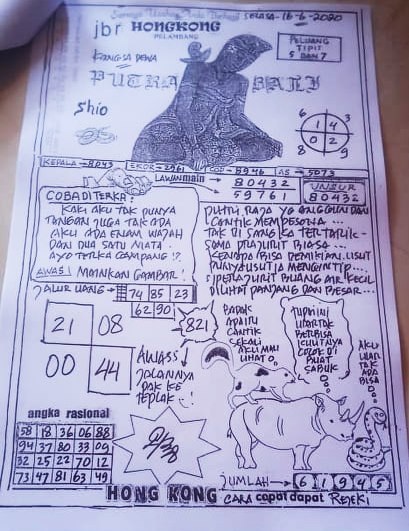 Semoga Undian Anda Berhasil
SELASA-16-6-2020
jbr HONGKONG
PELAMBANG
PELUANG
TIPIT
5 DAN 7
KANGSA DEWA
PUTRA BALI
Shio
6 3
1 4
0 2
8 9
KEPALA → 8043 EKOR → 2961 COP → 8946 AS → 5073
LAWAN main → 80432
59761
UNSUR
80432
COBA DITERKA:
KAKI AKU TAK PUNYA
TANGAN JUGA TAK ADA
AKU ADA ENAM WAJAH
DAN DUA SATU MATA.
AYO TERKA GAMPANG !?
AWAS! MAINKAN GAMBAR!
PUTRI RAJA YG ANGGUN DAN
CANTIK MEMPESONA
TAK DI SANGKA TERTARIK
SAMA PRAJURIT BIASA ...
KENAPA BISA DEMIKIAN. USUT
PUNYA USUT IA MENGINTIP...
SI PERAJURIT BUANG AIR KECIL
DILIHAT PANJANG DAN BESAR...
JALUR UANG → 74 85 23
62 90
21 08
00 44
821
AWASS
JALANNYA
PAK KE
TEPLAK !
BADAK
APA ITU
CANTIK
SEKALI
AKU MAU
LIHAT
TUPH INI
ULAR TAK
BERBISA
KULITNYA
COCOK DI
BUAT
SABUK
AKU
ULAR
TAK
ADA
BISA
angka rasional
58 18 36 06 88
94 37 80 33 09
32 25 22 70 12
73 47 81 63 49
JUMLAH → 6 1 9 4 5
HONG KONG CARA cepat dapat REJEKI